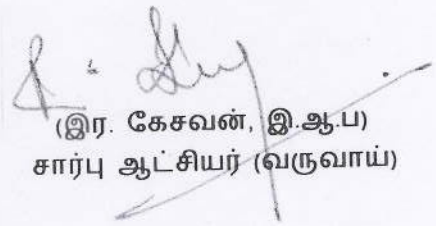 (இர. கேசவன், இ.ஆ.ப)
சார்பு ஆட்சியர் (வருவாய்)